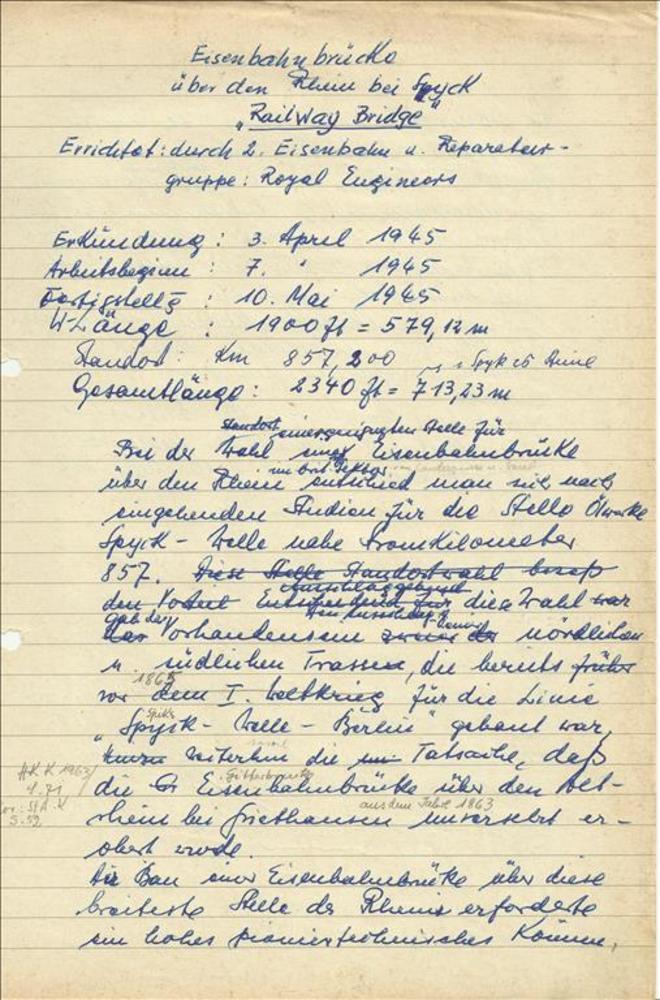 Eisenbahnbrücke
über den Rhein bei Spyck
„Railway Bridge"
Errichtet: durch 2. Eisenbahn u. Reparatur-
gruppe: Royal Engineers
Erkundung: 3. April 1945
Arbeitsbeginn: 7. " 1945
Fertigstellg: 10. Mai 1945
W-Länge: 1900 ft = 579,12 m
Standort: Km 857,200
Gesamtlänge: 2340 ft = 713,23 m
Standort einer geeigneten Stelle für
Bei der Wahl einer Eisenbahnbrücke
im brit. Sektor
über den Rhein entschied man sich nach
eingehenden Studien für die Stelle Ölwerke
Spyck - Welle nahe Stromkilometer
857. Diese Stelle Standortwahl besaß
Ausschlaggebend
den Vorteil Entscheidend für diese Wahl war
gab das den Ausschlag
das Vorhandensein der nördlichen
u. südlichen Trassen, die bereits früher
1865
vor dem I. Weltkrieg für die Linie
„Spyck - Welle - Berlin" gebaut war,
weiterhin die Tatsache, daß
HKK 1963
Gitterbrücke
die Eisenbahnbrücke über den Alt-
4.71
aus dem Jahre 1863
rhein bei Griethausen unversehrt er-
S. 59
obert wurde.
Der Bau einer Eisenbahnbrücke über diese
breiteste Stelle des Rheins erforderte
ein hohes pioniertechnisches Können,